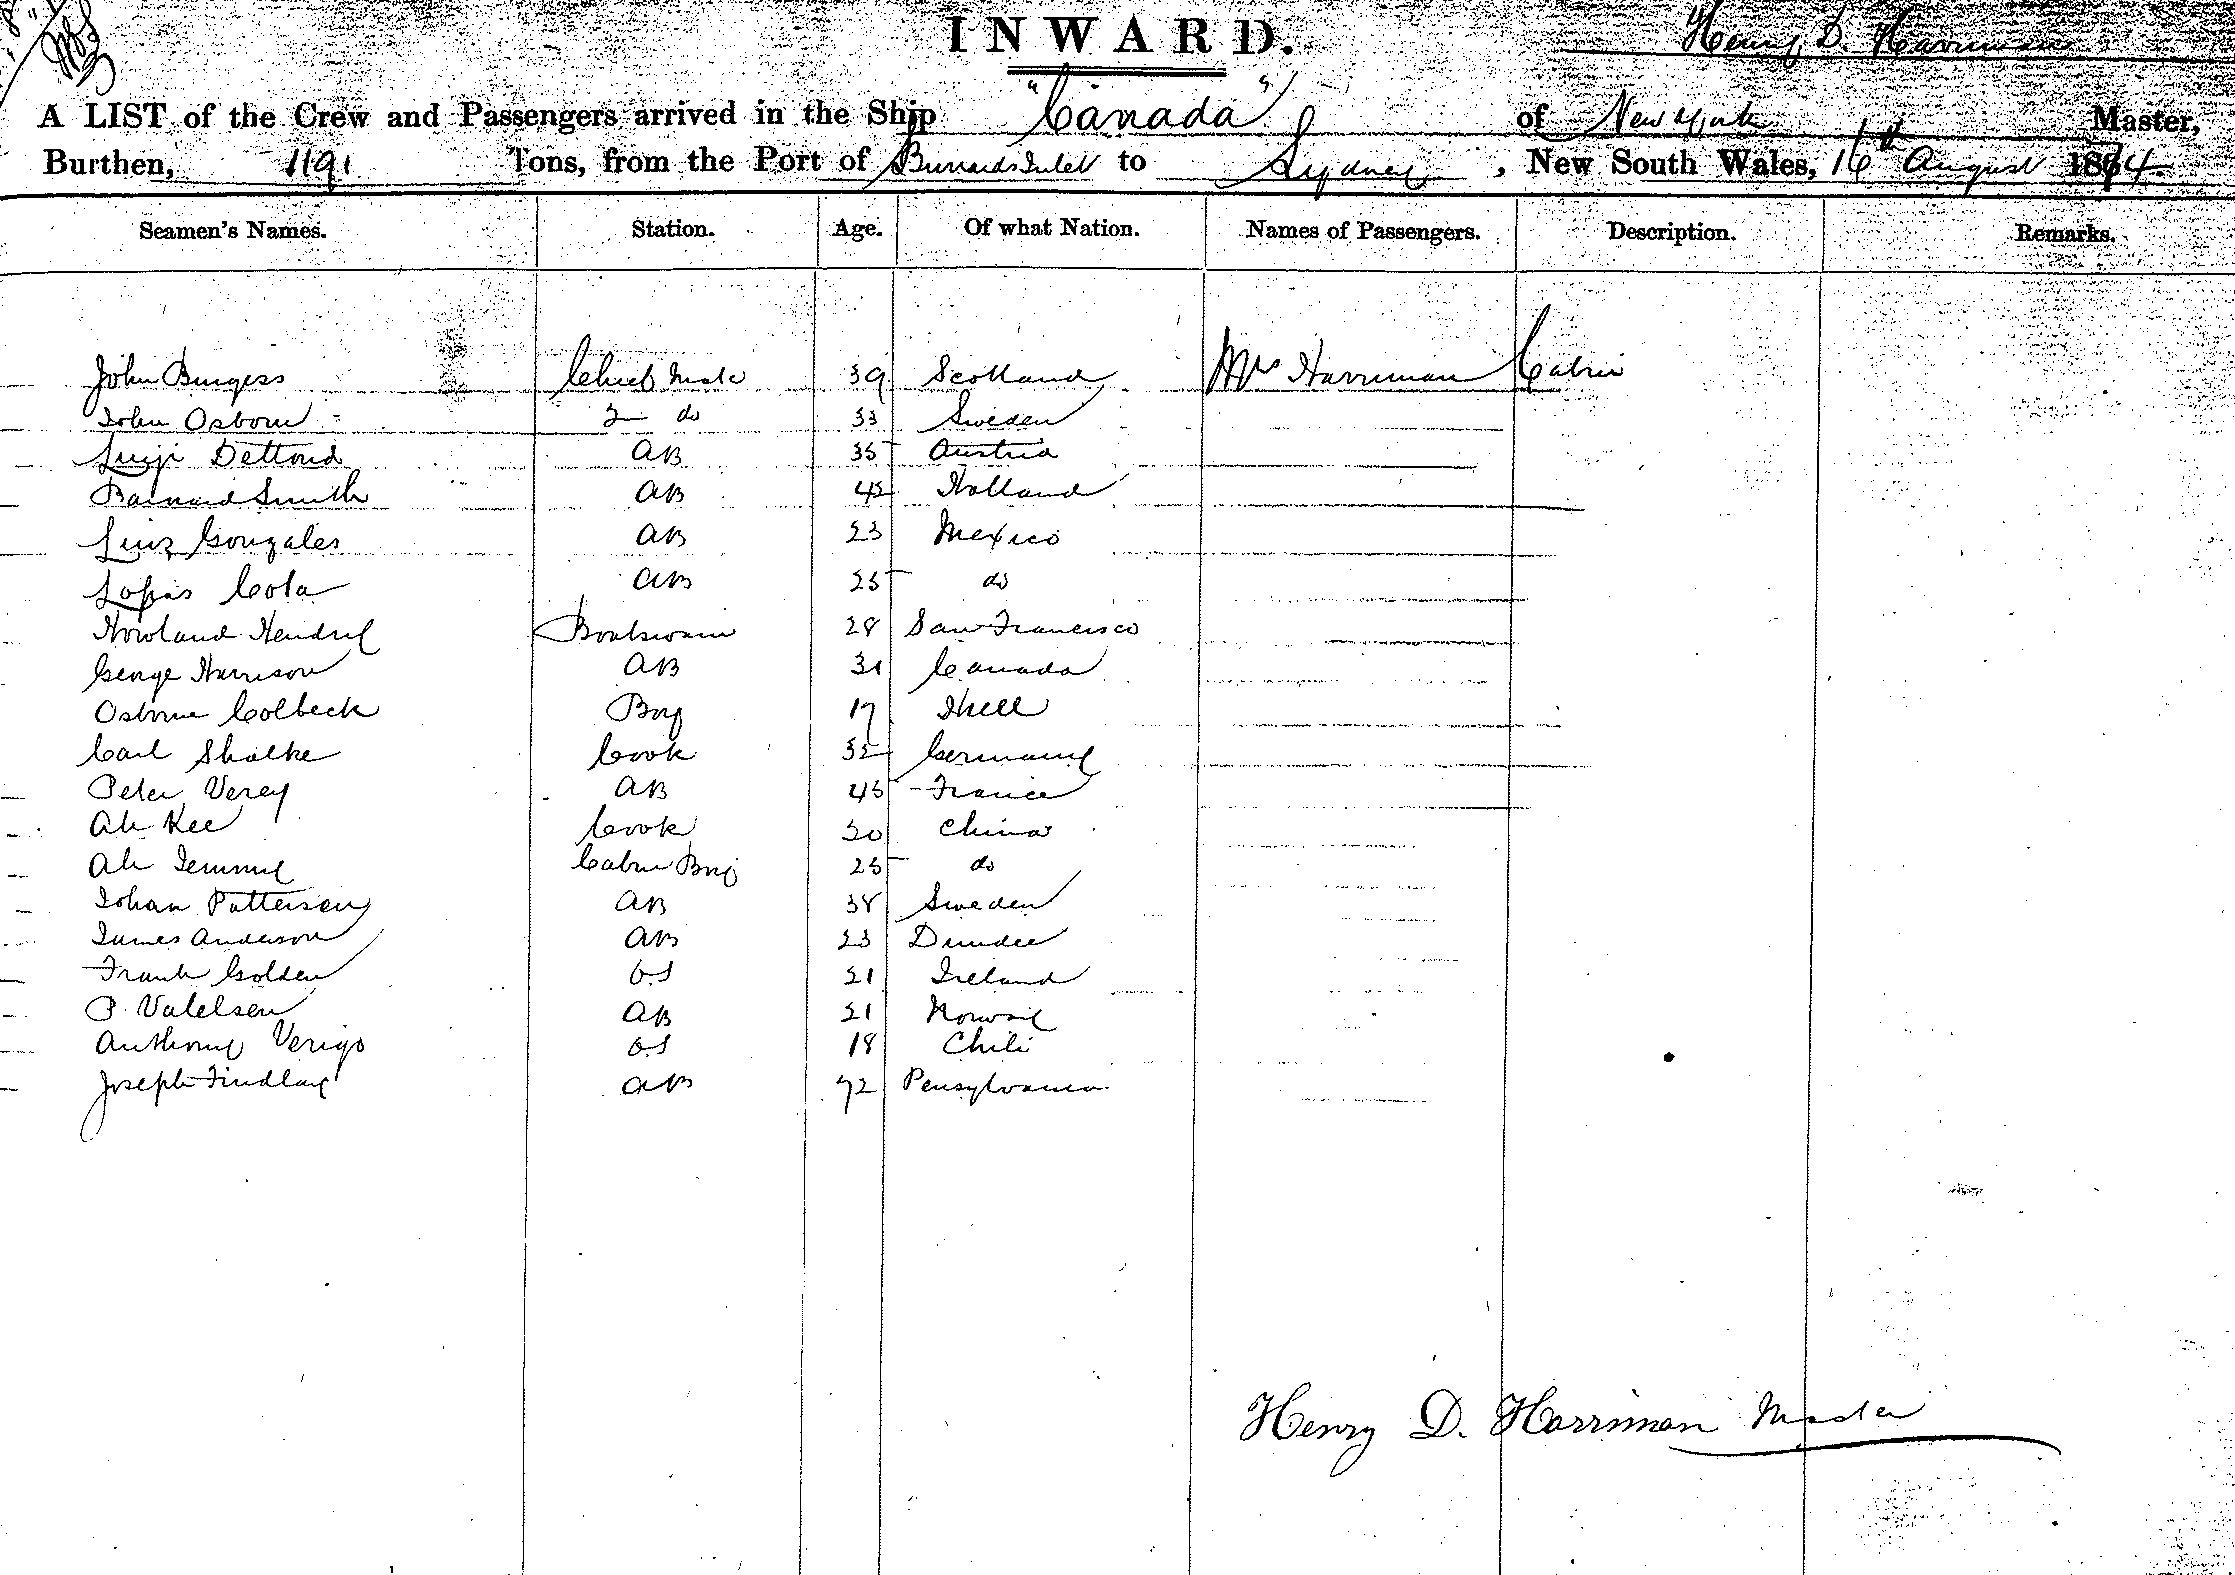 INWARD.
Henry D. Harriman
A LIST of the Crew and Passengers arrived in the Ship "Canada" of New York Master,
Burthen, 1191 Tons, from the Port of Burrards Inlet to Sydney, New South Wales, 16th August 1874.
Seamen's Names. Station. Age. Of what Nation. Names of Passengers. Description. Remarks.
John Burgess Chief Mate 39 Scotland Mrs Harriman Cabin
John Osborn 2 do 33 Sweden
Luiji Dettond AB 35 Austria
Barnard Smith AB 42 Holland
Luiz Gonzales AB 23 Mexico
Lopas Cota AB 25 do
Howland Boatswain 28 San Francisco
George Harrison AB 31 Canada
Osborne Colbeck Boy 17
Carl Shalke Cook 32 Germany
Peter Verey AB 45 France
Ah Kee Cook 30 China
Ah Cabin Boy 25 do
Johan Pattersen AB 38 Sweden
James Anderson AB 23 Dundee
Frank Golden OS 21 Ireland
P. Valelsen AB 21 Norway
Anthony Verigo OS 18 Chili
Joseph Findlay AB 72 Pensylvania
Henry D. Harriman Master